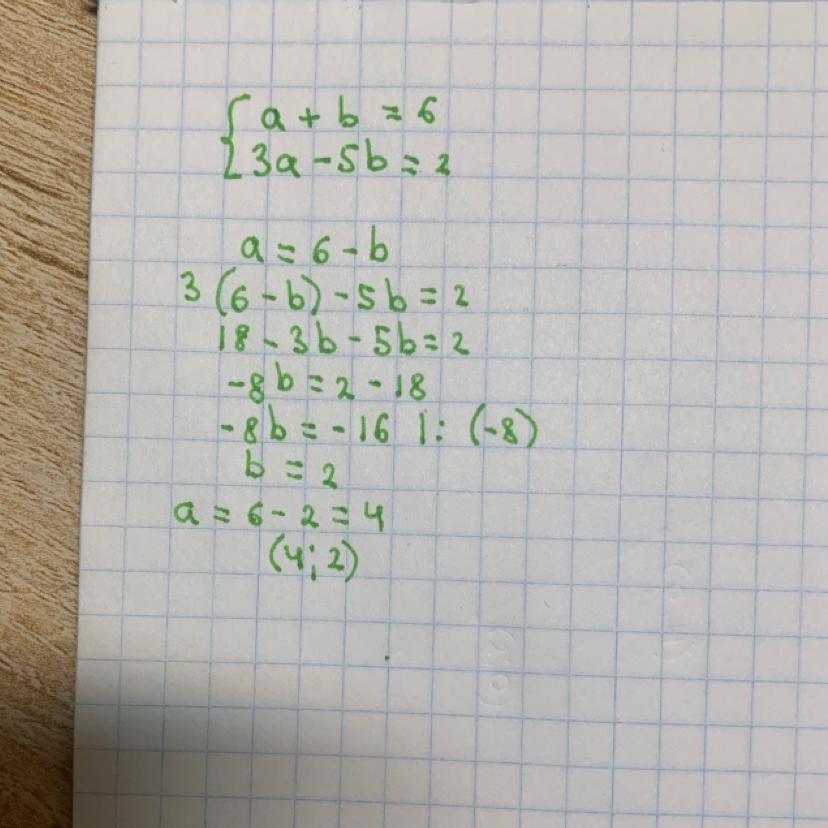 { a + b = 6
3a - 5b = 2
a = 6 - b
3 (6 - b) - 5b = 2
18 - 3b - 5b = 2
-8b = 2 - 18
-8b = -16 |: (-8)
b = 2
a = 6 - 2 = 4
(4; 2)